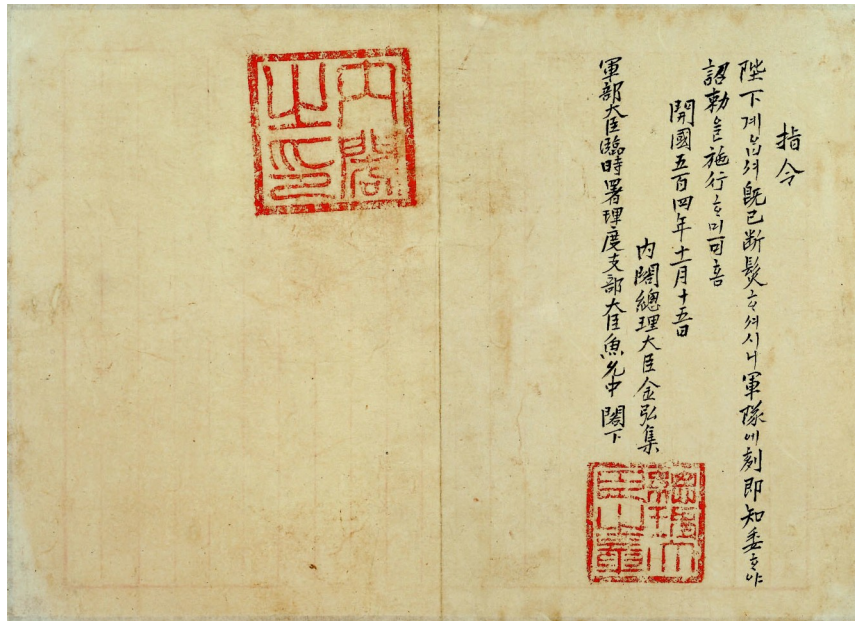 指令
陛下계옵셔旣已断髮ᄒᆞ셔시니軍隊에刻即知委ᄒᆞ야
詔勅을施行ᄒᆞ미可홈
開國五百四年十一月十五日
內閣總理大臣金弘集
軍部大臣臨時署理度支部大臣魚允中 閣下
內閣
之印
總理大
臣之章